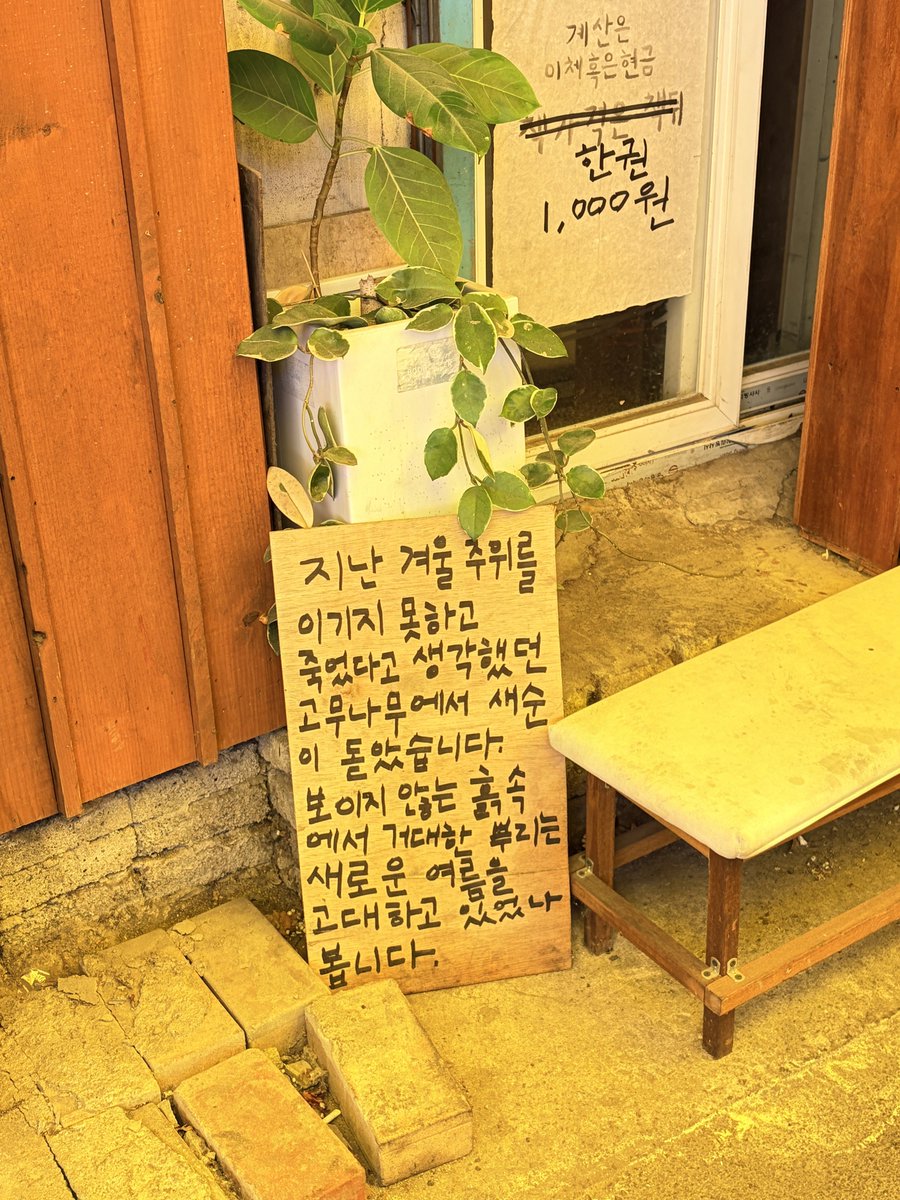 계산은
이체 혹은 현금
한권
1,000원
지난 겨울 추위를
이기지 못하고
죽었다고 생각했던
고무나무에서 새순
이 돋았습니다.
보이지 않는 흙 속
에서 거대한 뿌리는
새로운 여름을
고대하고 있었나
봅니다.